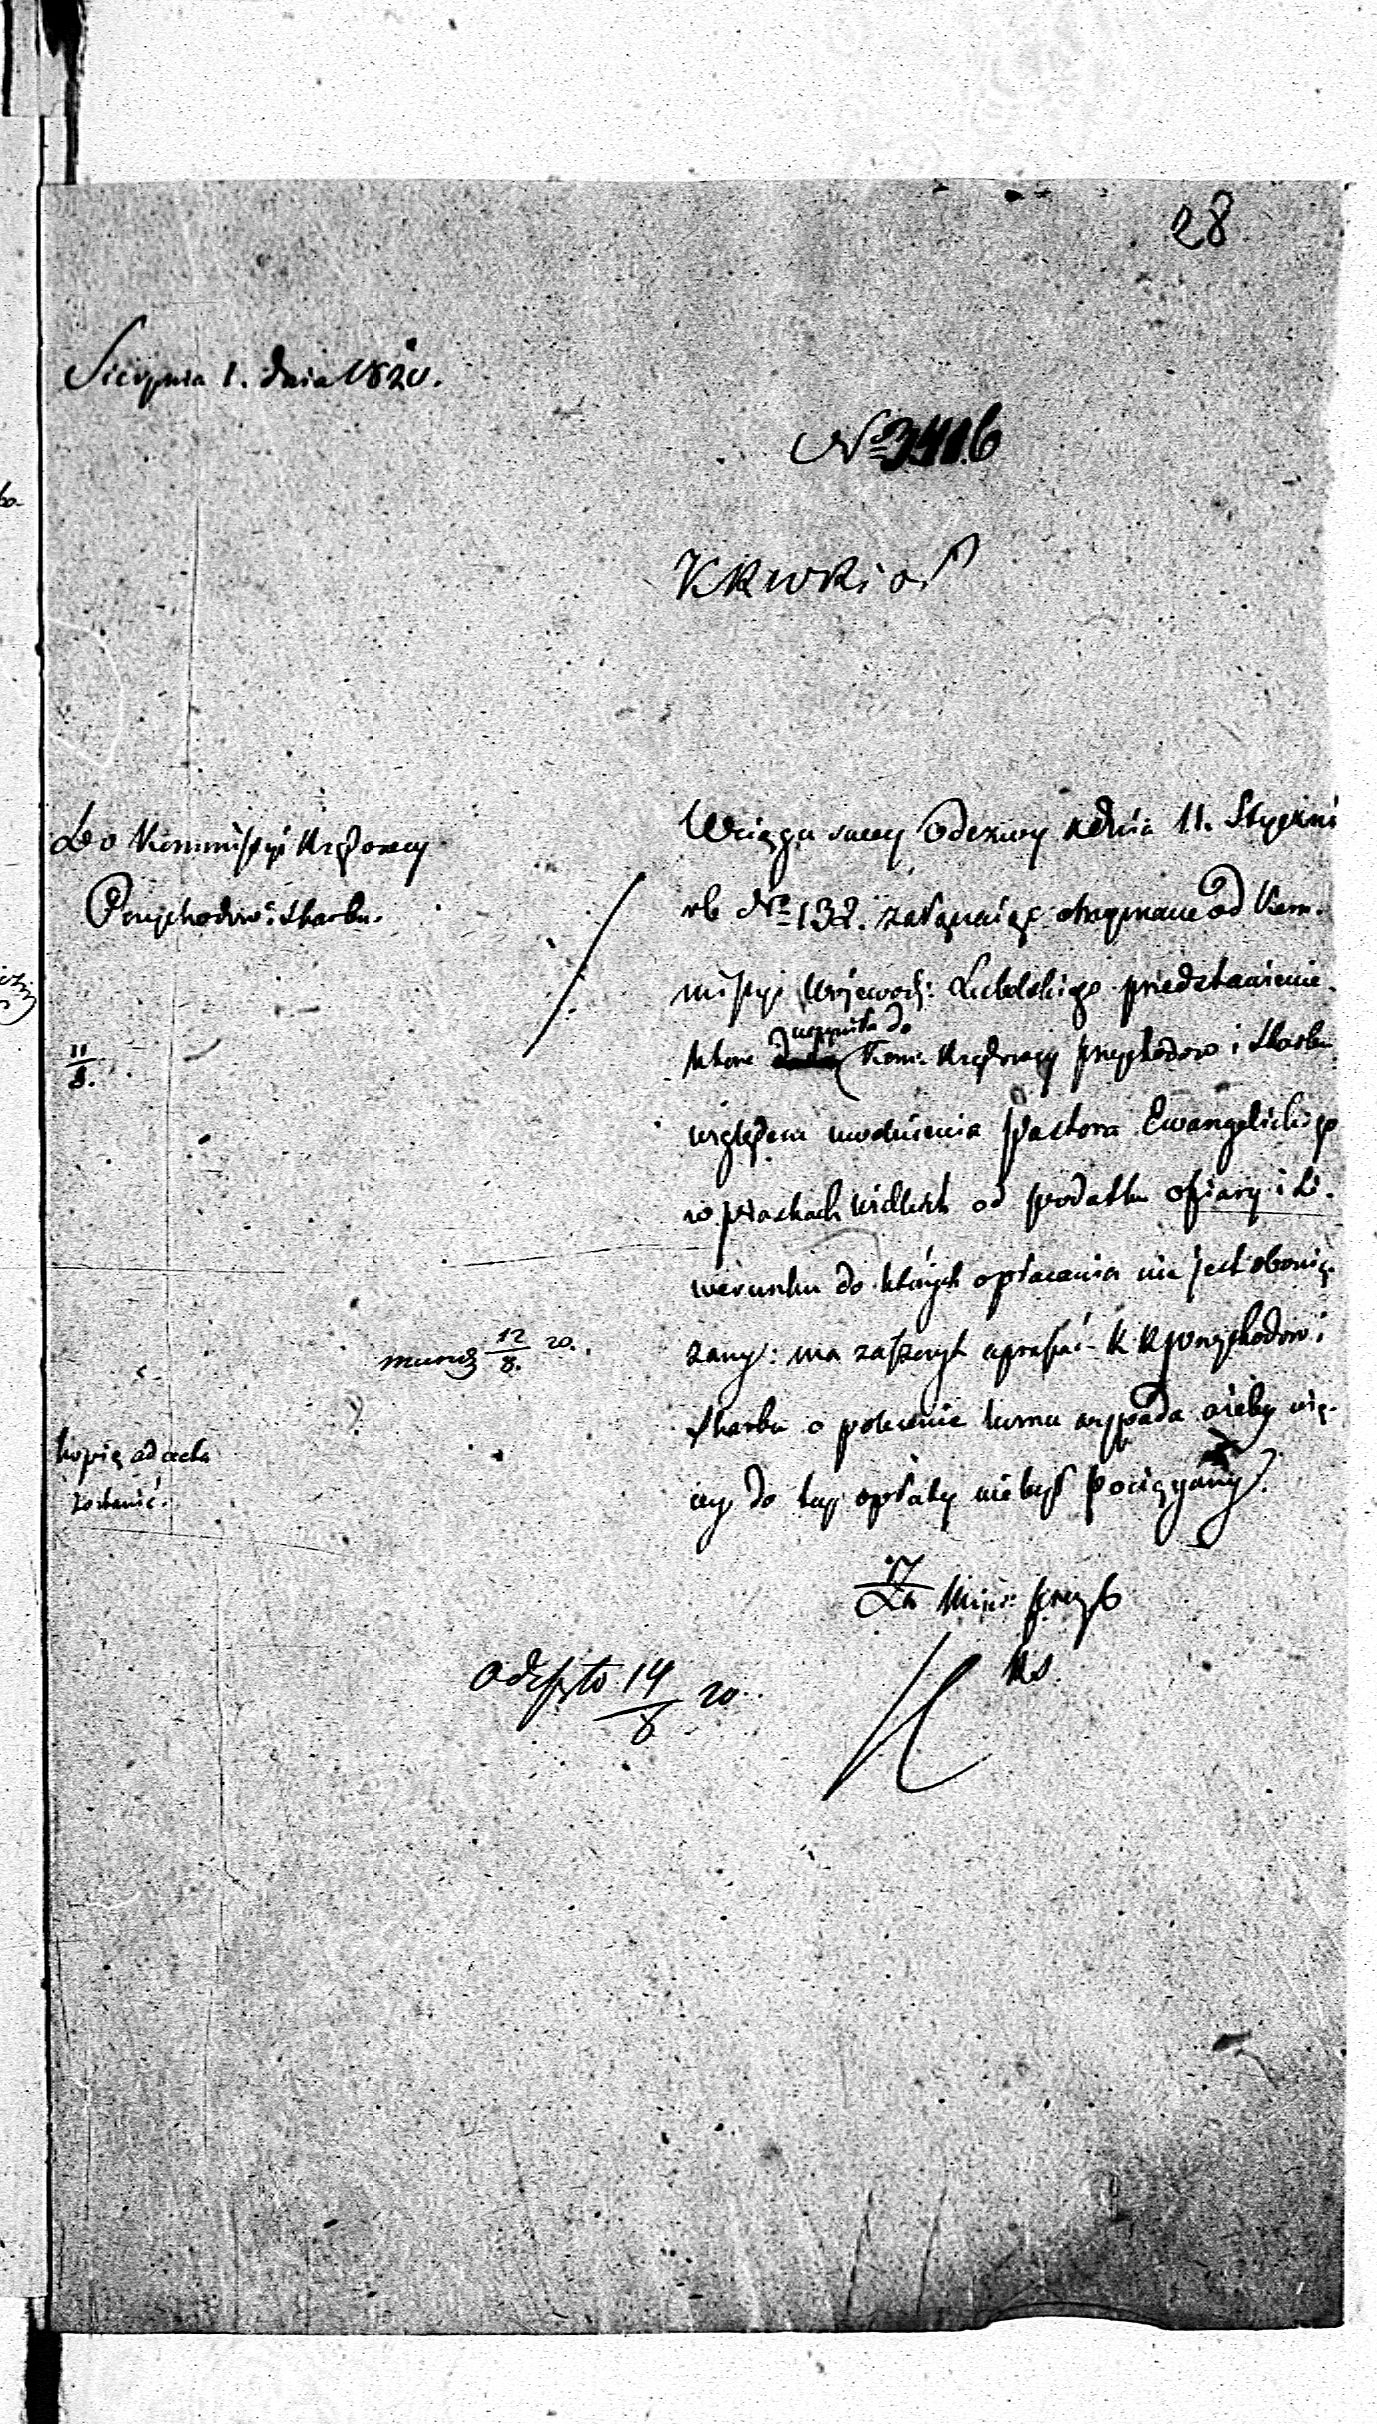 28
Sierpnia 1. dnia 1820.
No 3418.6
KRWRiOP
Do Kommissyi Rządowey
Przychodów i Skarbu.
11/8.
W ciągu swey Odezwy z dnia 11. Stycznia
rb No 138. załączając otrzymane od Kom-
missyi Wojewodz: Lubelskiego przedstawienie
które uczyniła do Kom: Rządowey przychodów i Skarbu
względem uwolnienia Pastora Ewangelickiego
w piaskach wielkich od podatku ofiary i Li-
werunku do których opłacenia nie jest obowią-
zany: ma zaszczyt upraszać K R przychodów i
Skarbu o polecenie komu wypada ażeby wię-
cey do tey opłaty nie był pociągany.
mund 12/8. 20.
kopię ad acta
zostawić.
Za Minis: prezyd
Odeszło 14/8 20.